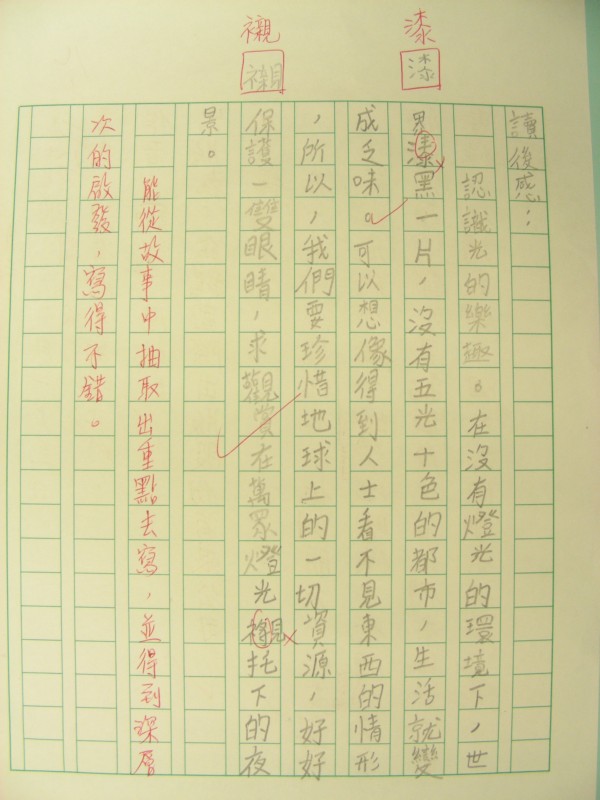 漆
漆
襯
襯
讀後感：
認識光的樂趣。在沒有燈光的環境下，世
界漆黑一片，沒有五光十色的都市，生活就變
成乏味。可以想像得到人士看不見東西的情形
，所以，我們要珍惜地球上的一切資源，好好
保護一雙眼睛，求觀賞在萬眾燈光襯托下的夜
景。
能從故事中抽取出重點去寫，並得到深層
次的啟發，寫得不錯。